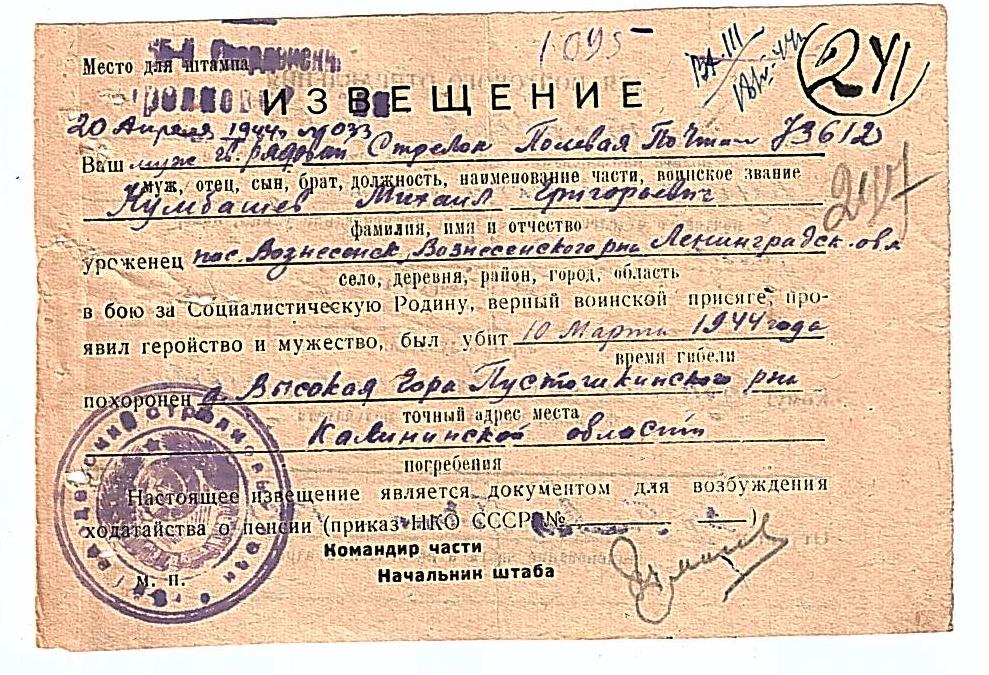 1095
241
Место для штампа
ИЗВЕЩЕНИЕ
20 Апреля 1944г №033
Ваш муж гв. рядовой Стрелок Полевая Почта 73612
муж, отец, сын, брат, должность, наименование части, воинское звание
Кумбашев Михаил Григорьевич
фамилия, имя и отчество
уроженец пос. Вознесенск, Вознесенского рна Ленинградск. обл
село, деревня, район, город, область
в бою за Социалистическую Родину, верный воинской присяге, про-
явил геройство и мужество, был убит 10 Марта 1944 года
время гибели
похоронен д. Высокая Гора Пустошкинского рна
точный адрес места
Калининской области
погребения
Настоящее извещение является документом для возбуждения
ходатайства о пенсии (приказ НКО СССР №
Командир части
Начальник штаба
м. п.